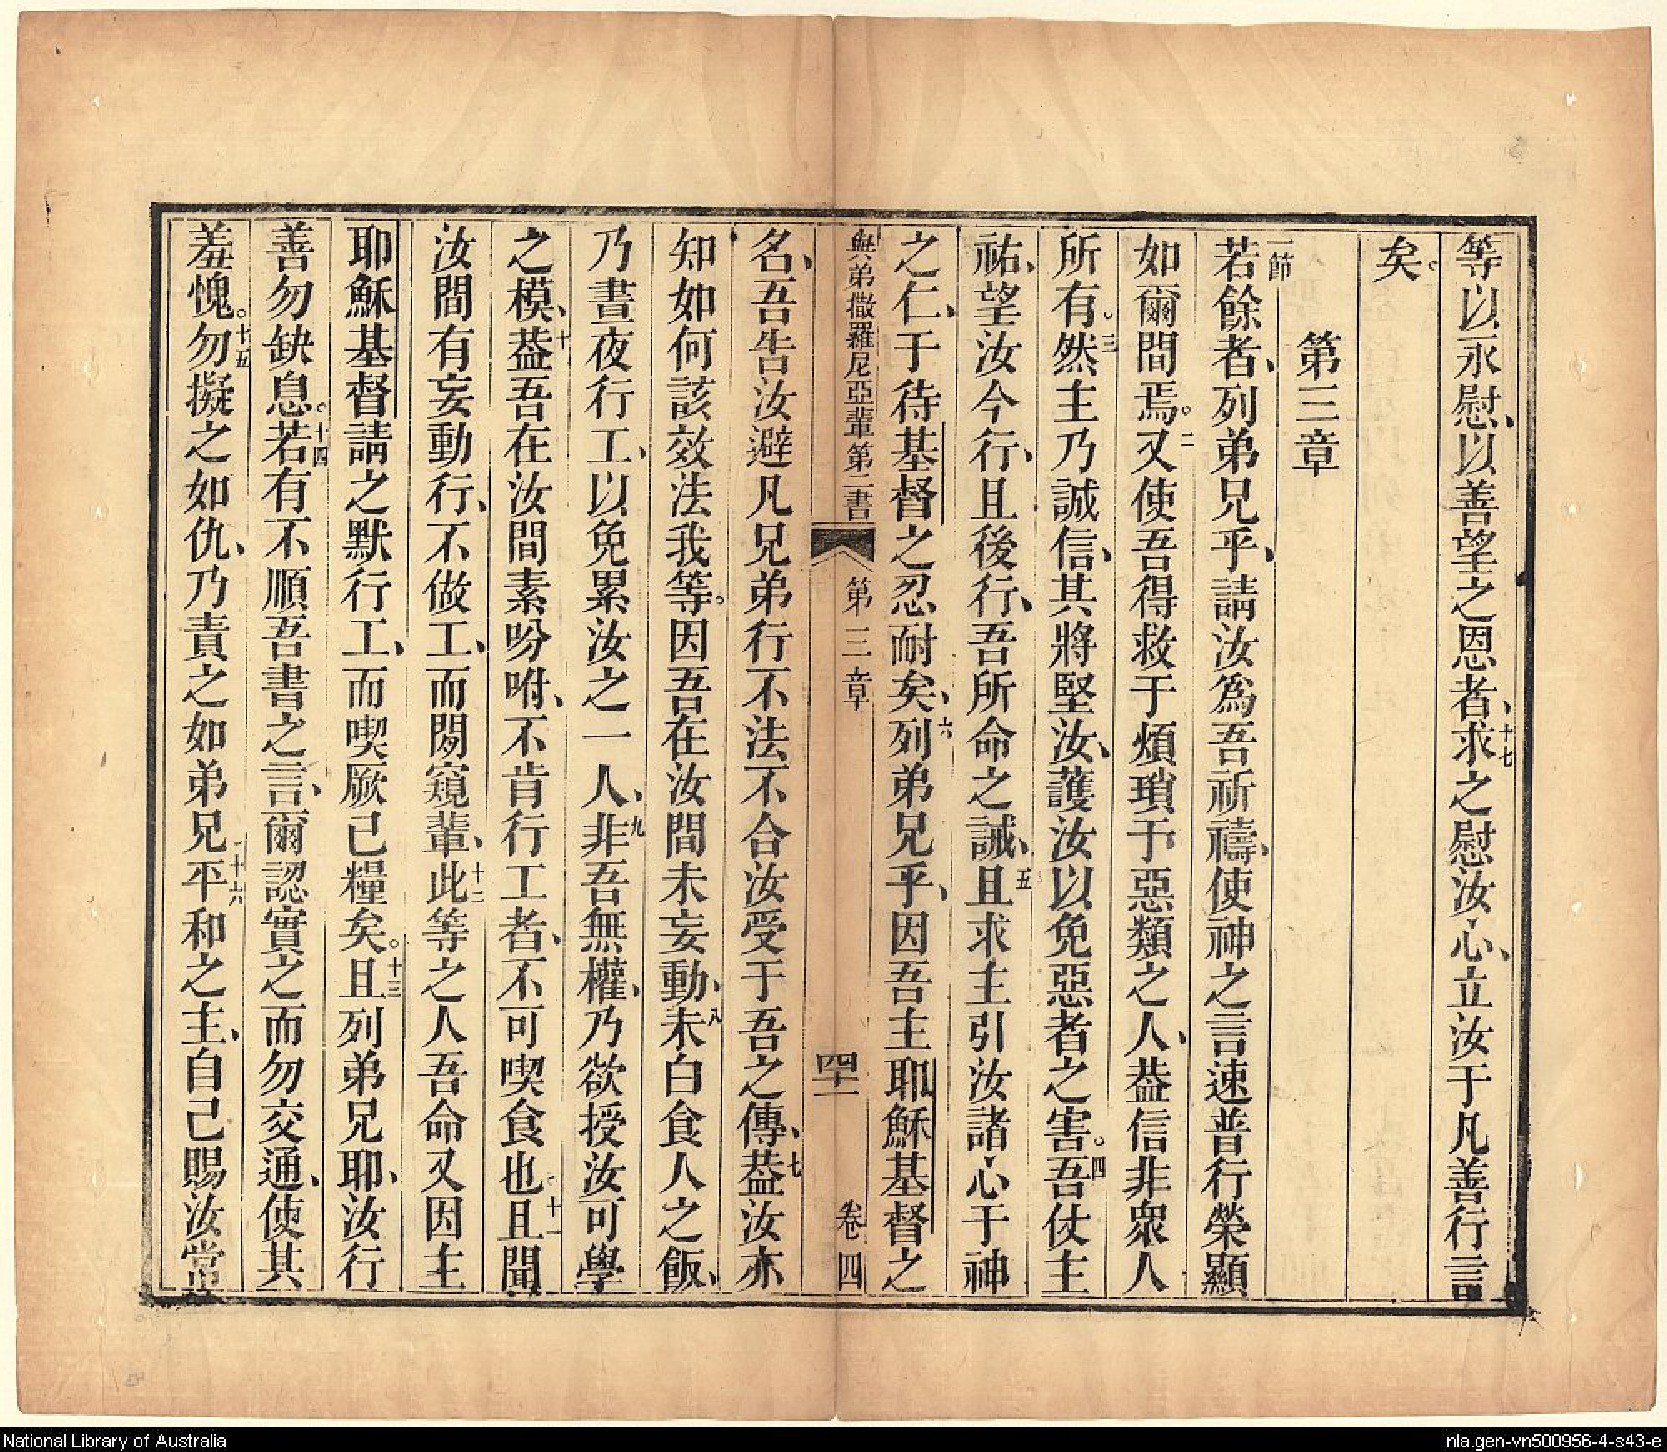 等以永慰、以善望之恩者、十七求之慰汝心、立汝于凡善行言
矣。
第三章
一節若餘者、列弟兄乎、請汝為吾祈禱、使神之言速普行榮顯
如爾間焉。二又使吾得救于煩瑣予惡類之人、葢信非衆人
所有。三然主乃誠信、其將堅汝、護汝以免惡者之害。四吾仗主
祐、望汝今行、且後行、吾所命之誡、五且求主引汝諸心于神
之仁、于待基督之忍耐矣、六列弟兄乎、因吾主耶穌基督之
與弟撒羅尼亞輩第二書 第三章 四十一 卷四
名、吾告汝避凡兄弟行不法不合汝受于吾之傳、七葢汝亦
知如何該效法我等。因吾在汝間未妄動、八未白食人之飯、
乃晝夜行工、以免累汝之一人、九非吾無權、乃欲授汝可學
之模、十葢吾在汝間素吩咐、不肯行工者、不可喫食也。十一且聞
汝間有妄動行、不做工、而閱窺輩、十二此等之人吾命又因主
耶穌基督請之默行工、而喫厥己糧矣。十三且列弟兄耶、汝行
善勿缺息。十四若有不順吾書之言、爾認實之而勿交通、使其
羞愧。十五勿擬之如仇、乃責之如弟兄、十六平和之主、自己賜汝常
National Library of Australia
nla.gen-vn500956-4-s43-e